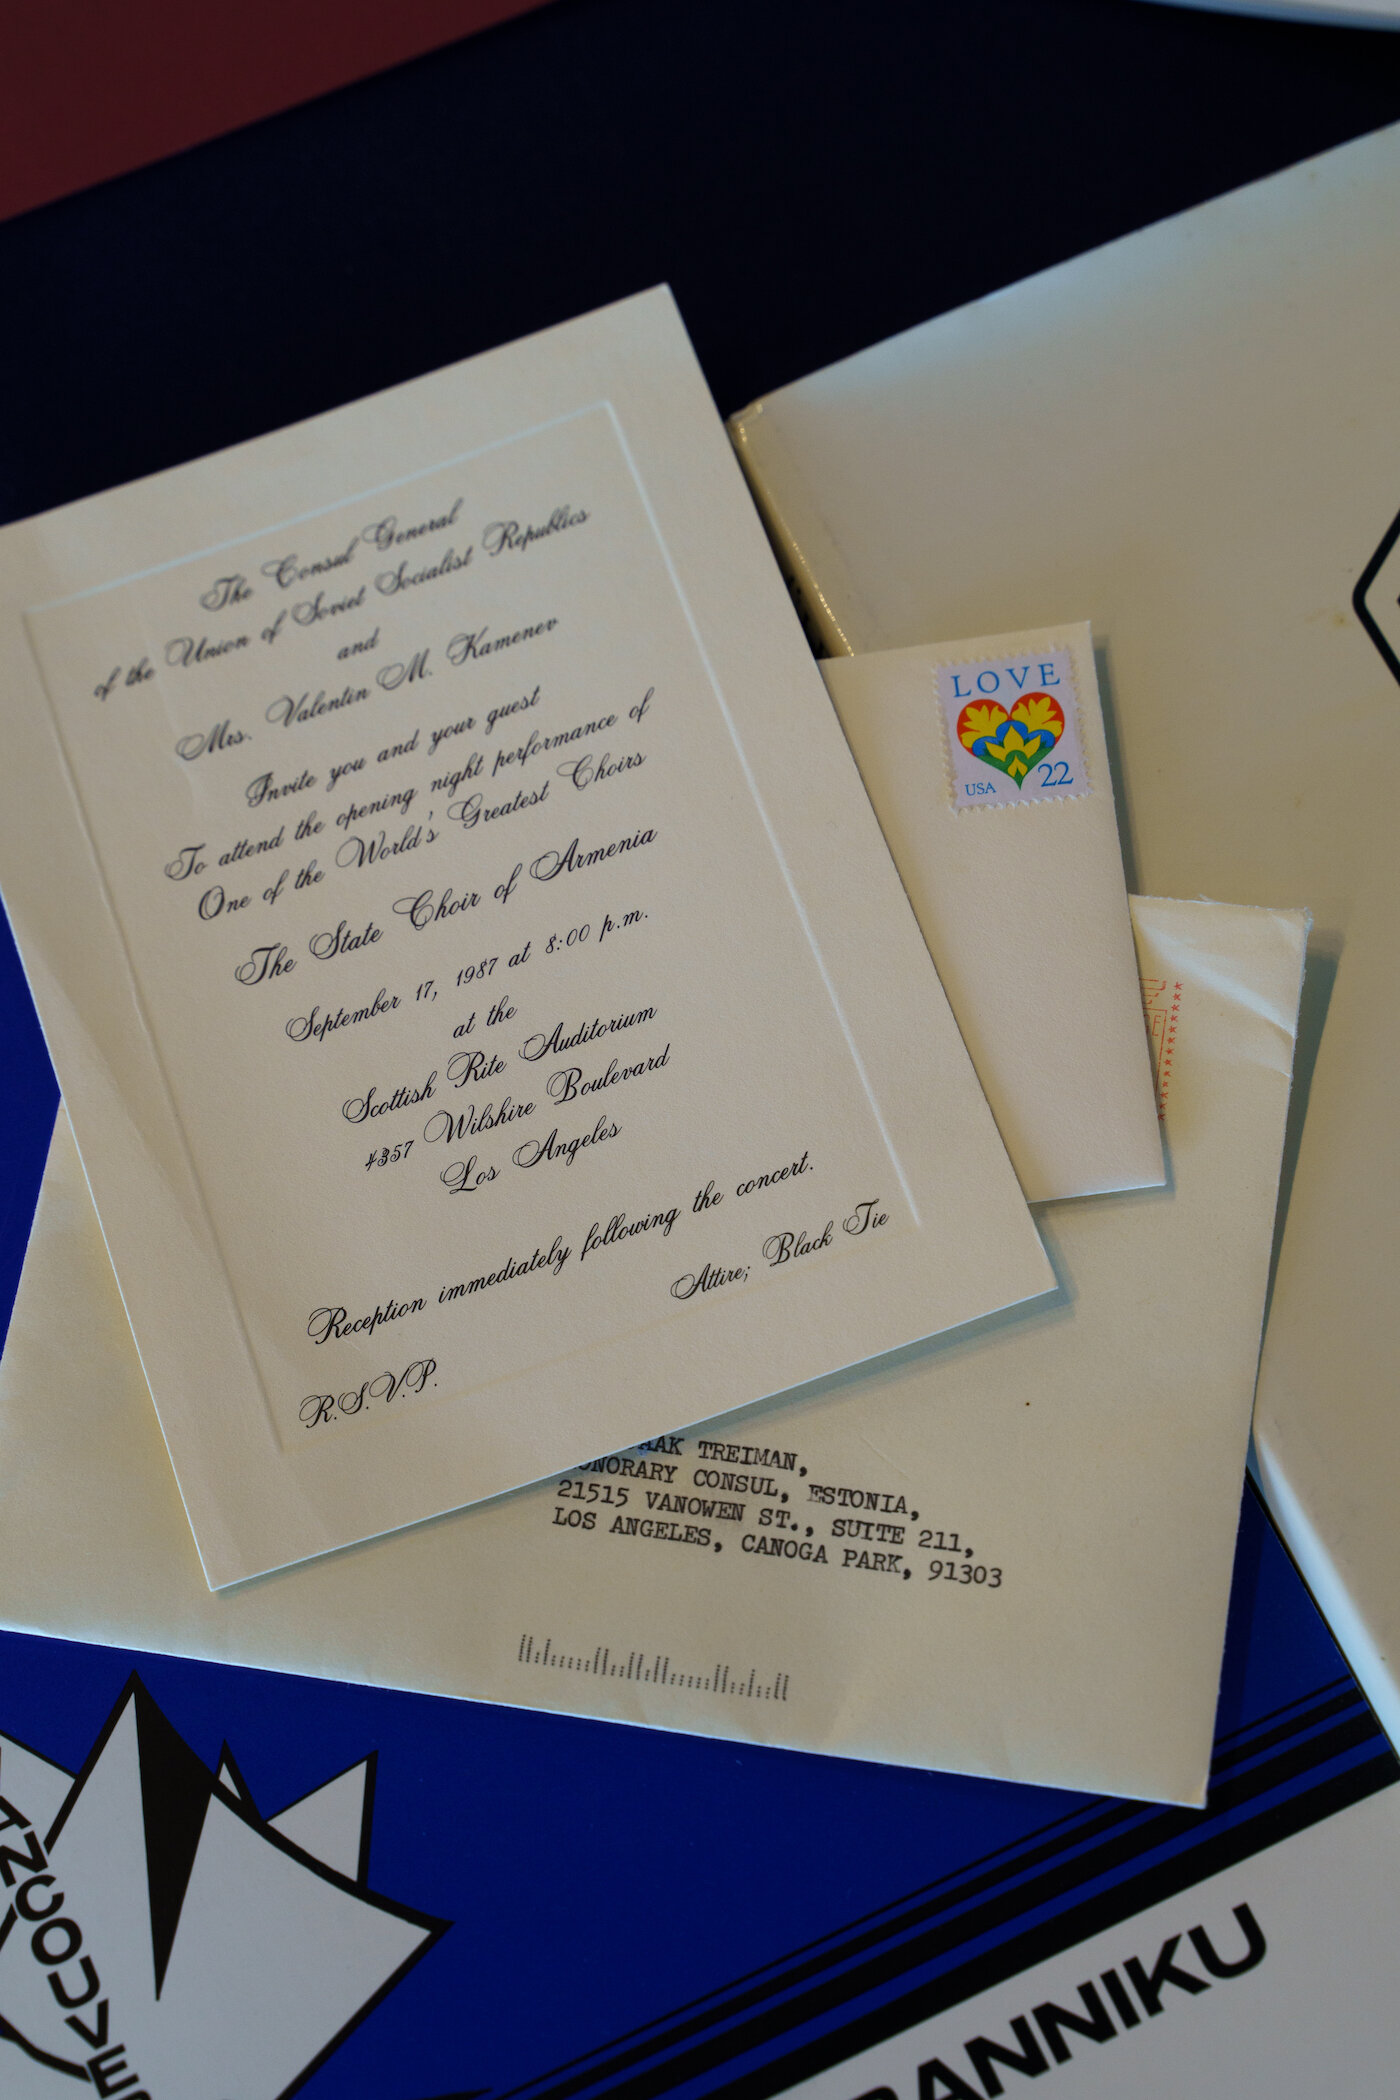 The Consul General
of the Union of Soviet Socialist Republics
and
Mrs. Valentin M. Kamenev
Invite you and your guest
To attend the opening night performance of
One of the World's Greatest Choirs
The State Choir of Armenia
September 17, 1987 at 8:00 p.m.
at the
Scottish Rite Auditorium
4357 Wilshire Boulevard
Los Angeles
Reception immediately following the concert.
Attire; Black Tie
R.S.V.P.
LOVE
USA 22
TREIMAN,
CONSUL, ESTONIA,
21515 VANOWEN ST., SUITE 211,
LOS ANGELES, CANOGA PARK, 91303
ANCOUVE
ANNIKU